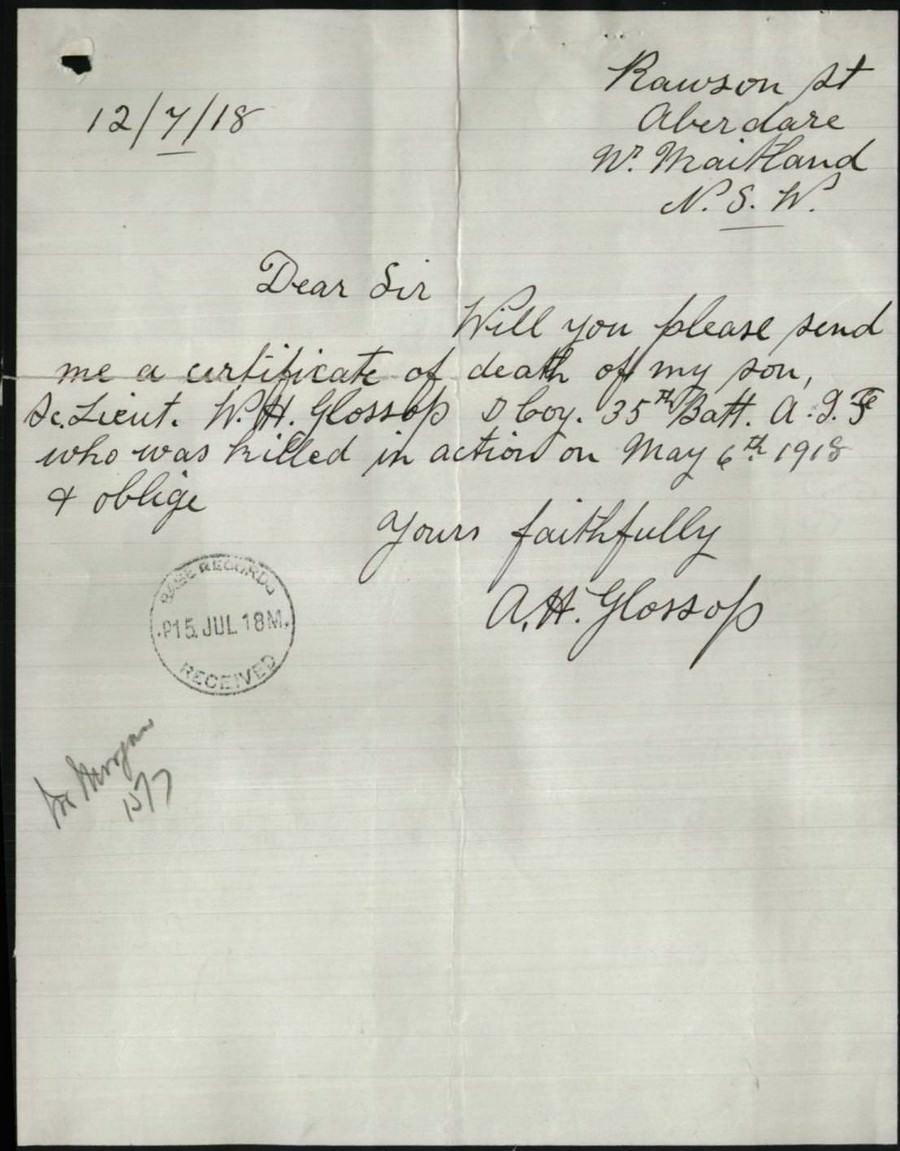 Rawson St
12/7/18
Aberdare
Wt. Maitland
N.S.W.
Dear Sir
Will you please send
me a certificate of death of my son,
Sc. Lieut. W.H. Glossop D Coy. 35th Batt. A.I.F
who was killed in action on May 6th 1918
& oblige
Yours faithfully
A.H. Glossop
BASE RECORDS
P15 JUL 18M.
RECEIVED
15/7